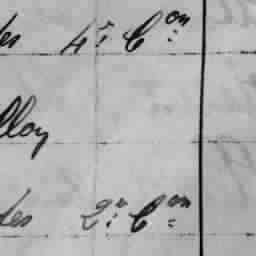 des 4e Con
lloy
des 2e Con